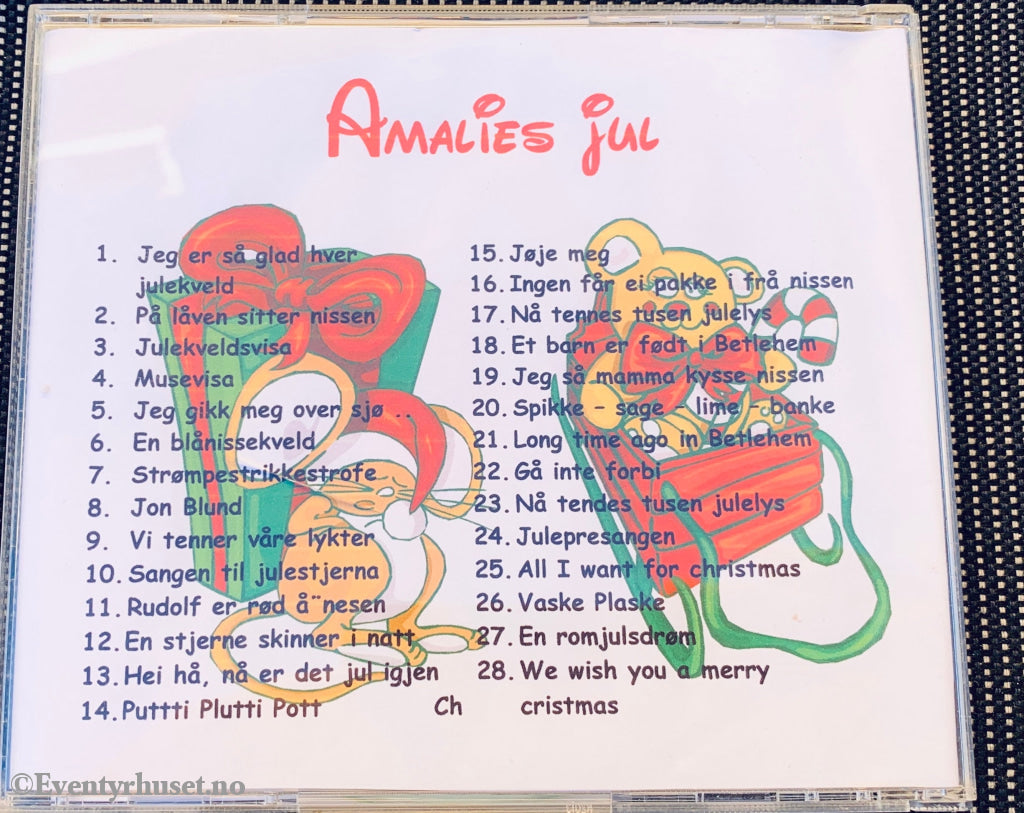 Amalies jul
1. Jeg er så glad hver
julekveld
2. På låven sitter nissen
3. Julekveldsvisa
4. Musevisa
5. Jeg gikk meg over sjø ..
6. En blånissekveld
7. Strømpestrikkestrofe
8. Jon Blund
9. Vi tenner våre lykter
10. Sangen til julestjerna
11. Rudolf er rød å¨nesen
12. En stjerne skinner i natt
13. Hei hå, nå er det jul igjen
14. Puttti Plutti Pott
15. Jøje meg
16. Ingen får ei pakke i frå nissen
17. Nå tennes tusen julelys
18. Et barn er født i Betlehem
19. Jeg så mamma kysse nissen
20. Spikke - sage - lime - banke
21. Long time ago in Betlehem
22. Gå inte forbi
23. Nå tendes tusen julelys
24. Julepresangen
25. All I want for christmas
26. Vaske Plaske
27. En romjulsdrøm
28. We wish you a merry
Ch cristmas
©Eventyrhuset.no